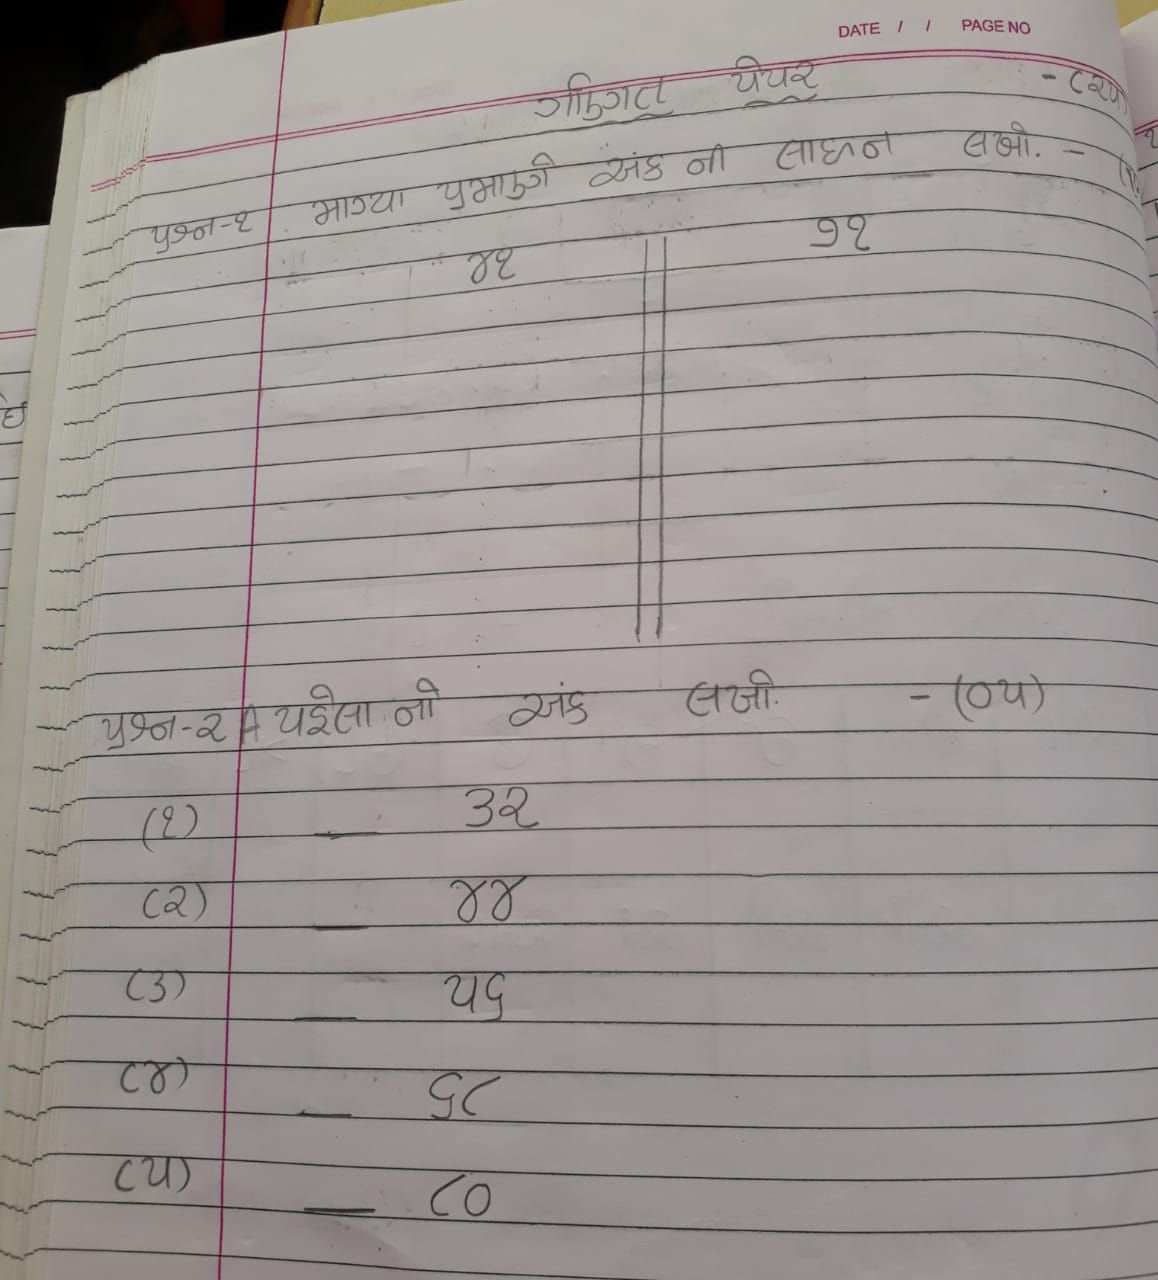 DATE / / PAGE NO
ગણિત પેપર - (૨૫)
પ્રશ્ન-૧ માગ્યા પ્રમાણે અંક ની લાઇન લખો. -
૪૧ ૭૧
પ્રશ્ન-૨ A પહેલા નો અંક લખો. - (૦૫)
(૧) __ ૩૨
(૨) __ ૪૪
(૩) __ ૫૬
(૪) __ ૬૮
(૫) __ ૮૦